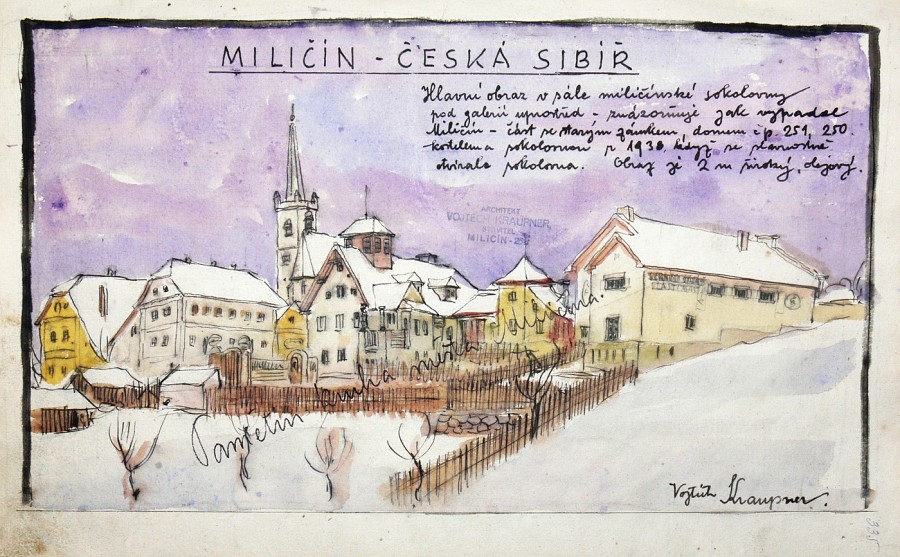 MILIČÍN - ČESKÁ SIBIŘ
Hlavní obraz v sále miličínské sokolovny
pod galerií uprostřed - znázorňuje jak vypadal
Miličín - část se starým zámkem, domem čp. 251, 250.
kostelem a sokolovnou r 1930, když se slavnostně
otvírala sokolovna. Obraz je 2 m široký, olejový.
ARCHITEKT
VOJTĚCH KRAUPNER,
STAVITEL
MILIČÍN-
Pamětní kniha města Miličína.
Vojtěch Kraupner.